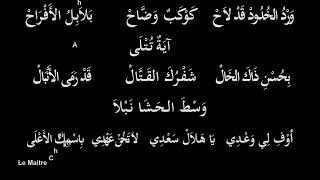 وَرْدُ الْخُلُودْ قَدْ لاَحْ كَوْكَبٌ وَضَّاحْ بَلاَبِلُ الأَفْرَاحْ
آيَةٌ تُتْلَى
بِحُسْنِ ذَاكَ الْخَالْ شَفْرُكَ الْقَتَّالْ قَدْ رَمَى الأَنْبَالْ
وَسْطَ الْحَشَا نَبْلاَ
أَوْفِ لِي وَعْدِي يَا هَلاَلْ سَعْدِي لاَ تَخُنْ عَهْدِي بِاسْمِكَ الأَعْلَى
Le Maitre